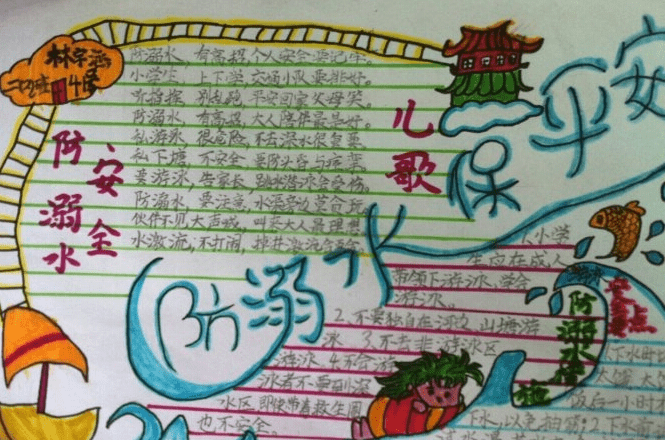 林字涵
二(2)班 4号
防溺水
安全
儿歌
防溺水，有高招，个人安全要记牢。
小学生，上下学，交通小队要排好。
听指挥，别乱跑，平安回家父母笑。
防溺水，有高招，大人陪伴最是好。
私游泳，很危险，不去深水很重要。
私下塘，不安全，要防头昏与痉挛。
要游泳，告家长，
防溺水，要注意，水温旁边莫合玩。
伙伴不见大声喊，叫来大人最理想
水激流，不打闹，
防溺水保平安
1.小学
生应在成人
带领下游泳，学会
游泳。
2.不要独自在河边、山塘游
泳 3.不去非游泳区
游泳 4.不会游
泳者不要到深
水区 即使带着救生圈
也不安全。
防溺水措施
下水时
太饿、太
饭后一小时
下水，以免抽筋；2.下水前